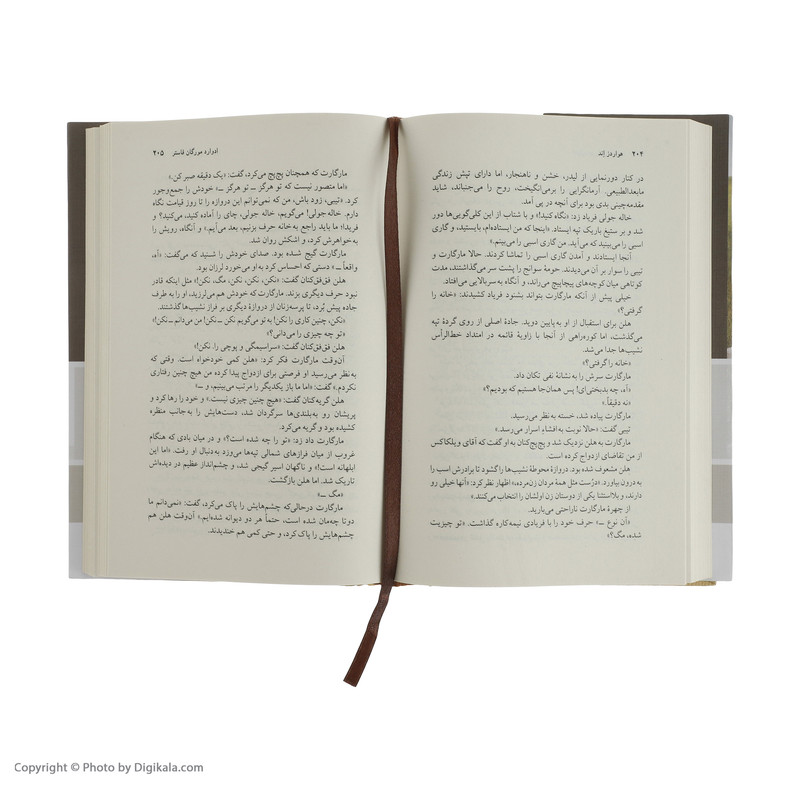 ۲۰۴ هواردز اِند
در کنار دورنمایی از لیدر، خشن و ناهنجار، اما دارای تپش زندگی
مابعدالطبیعی. آرمانگرایی را برمی‌انگیخت، روح را می‌جنباند، شاید
مقدمه‌چینی بدی بود برای آنچه در پی آمد.
خاله جولی فریاد زد: «نگاه کنید!» و با شتاب از این کلی‌گویی‌ها دور
شد و بر ستیغ باریک تپه ایستاد. «اینجا که من ایستاده‌ام، بایستید، و گاری
اسبی را می‌بینید که می‌آید. من گاری اسبی را می‌بینم.»
آنجا ایستادند و آمدن گاری اسبی را تماشا کردند. حالا مارگارت و
تیبی را سوار بر آن می‌دیدند. حومهٔ سوانج را پشت سر می‌گذاشتند، مدت
کوتاهی میان کوچه‌های پیچاپیچ می‌راند، و آنگاه به سربالایی می‌افتاد.
خیلی پیش از آنکه مارگارت بتواند بشنود فریاد کشیدند: «خانه را
گرفتی؟»
هلن برای استقبال از او به پایین دوید. جادهٔ اصلی از روی گردهٔ تپه
می‌گذشت، اما کوره‌راهی از آنجا با زاویهٔ قائمه در امتداد خط‌الرأس
نشیب‌ها جدا می‌شد.
«خانه را گرفتی؟»
مارگارت سرش را به نشانهٔ نفی تکان داد.
«آه، چه بدبختی‌ای! پس همان‌جا هستیم که بودیم؟»
«نه دقیقاً.»
مارگارت پیاده شد، خسته به نظر می‌رسید.
تیبی گفت: «حالا نوبت به افشاءِ اسرار می‌رسد.»
مارگارت به هلن نزدیک شد و پچ‌پچ‌کنان به او گفت که آقای ویلکاکس
از من تقاضای ازدواج کرده است.
هلن مشعوف شده بود. دروازهٔ محوطهٔ نشیب‌ها را گشود تا برادرش اسب را
به درون بیاورد. «درُست مثل همهٔ مردان زن‌مرده،» اظهار نظر کرد: «آنها خیلی رو
دارند، و بلااستثنا یکی از دوستان زن اولشان را انتخاب می‌کنند.»
از چهرهٔ مارگارت ناراحتی می‌بارید.
«آن نوع ـ» حرف خود را با فریادی نیمه‌کاره گذاشت. «تو چیزیت
شده، مگ؟»
ادوارد مورگان فاستر ۲۰۵
مارگارت که همچنان پچ‌پچ می‌کرد، گفت: «یک دقیقه صبر کن.»
«اما متصور نیست که تو هرگز ـ تو هرگز ـ» خودش را جمع‌وجور
کرد. «تیبی، زود باش، من که نمی‌توانم این دروازه را تا روز قیامت نگاه
دارم. خاله‌جولی! می‌گویم، خاله جولی، چای را آماده کنید، می‌کنید؟ و
فریدا! ما باید راجع به خانه حرف بزنیم، بعد می‌آیم.» و آنگاه، رویش را
به خواهرش کرد، و اشکش روان شد.
مارگارت گیج شده بود. صدای خودش را شنید که می‌گفت: «آه،
واقعاً ـ» دستی که احساس کرد به او می‌خورد لرزان بود.
هلن فق‌فق‌کنان گفت: «نکن، نکن، نکن، مگ، نکن!» مثل اینکه قادر
نبود حرف دیگری بزند. مارگارت که خودش هم می‌لرزید، او را به طرف
جاده پیش بُرد، تا پرسه‌زنان از دروازهٔ دیگری بر فراز نشیب‌ها گذشتند.
«نکن، چنین کاری را نکن! به تو می‌گویم نکن ـ نکن! من می‌دانم ـ نکن!»
«تو چه چیزی را می‌دانی؟»
هلن فق‌فق‌کنان گفت: «سراسیمگی و پوچی را. نکن!»
آن‌وقت مارگارت فکر کرد: «هلن کمی خودخواه است. وقتی که
به نظر می‌رسید او فرصتی برای ازدواج پیدا کرده من هیچ چنین رفتاری
نکردم.» گفت: «اما ما باز یکدیگر را مرتب می‌بینیم، و ـ»
هلن گریه‌کنان گفت: «هیچ چنین چیزی نیست.» و خود را رها کرد و
پریشان رو به بلندی‌ها سرگردان شد، دست‌هایش را به‌جانب منظره
کشیده بود و گریه می‌کرد.
مارگارت داد زد: «تو را چه شده است؟» و در میان بادی که هنگام
غروب از میان فرازهای شمالی تپه‌ها می‌وزد به‌دنبال او رفت. «اما این
ابلهانه است!» و ناگهان اسیر گیجی شد، و چشم‌انداز عظیم در دیده‌اش
تاریک شد. اما هلن بازگشت.
«مگ ـ»
مارگارت درحالی‌که چشم‌هایش را پاک می‌کرد، گفت: «نمی‌دانم ما
دوتا چه‌مان شده است، حتماً هر دو دیوانه شده‌ایم.» آن‌وقت هلن هم
چشم‌هایش را پاک کرد، و حتی کمی هم خندیدند.
Copyright © Photo by Digikala.com